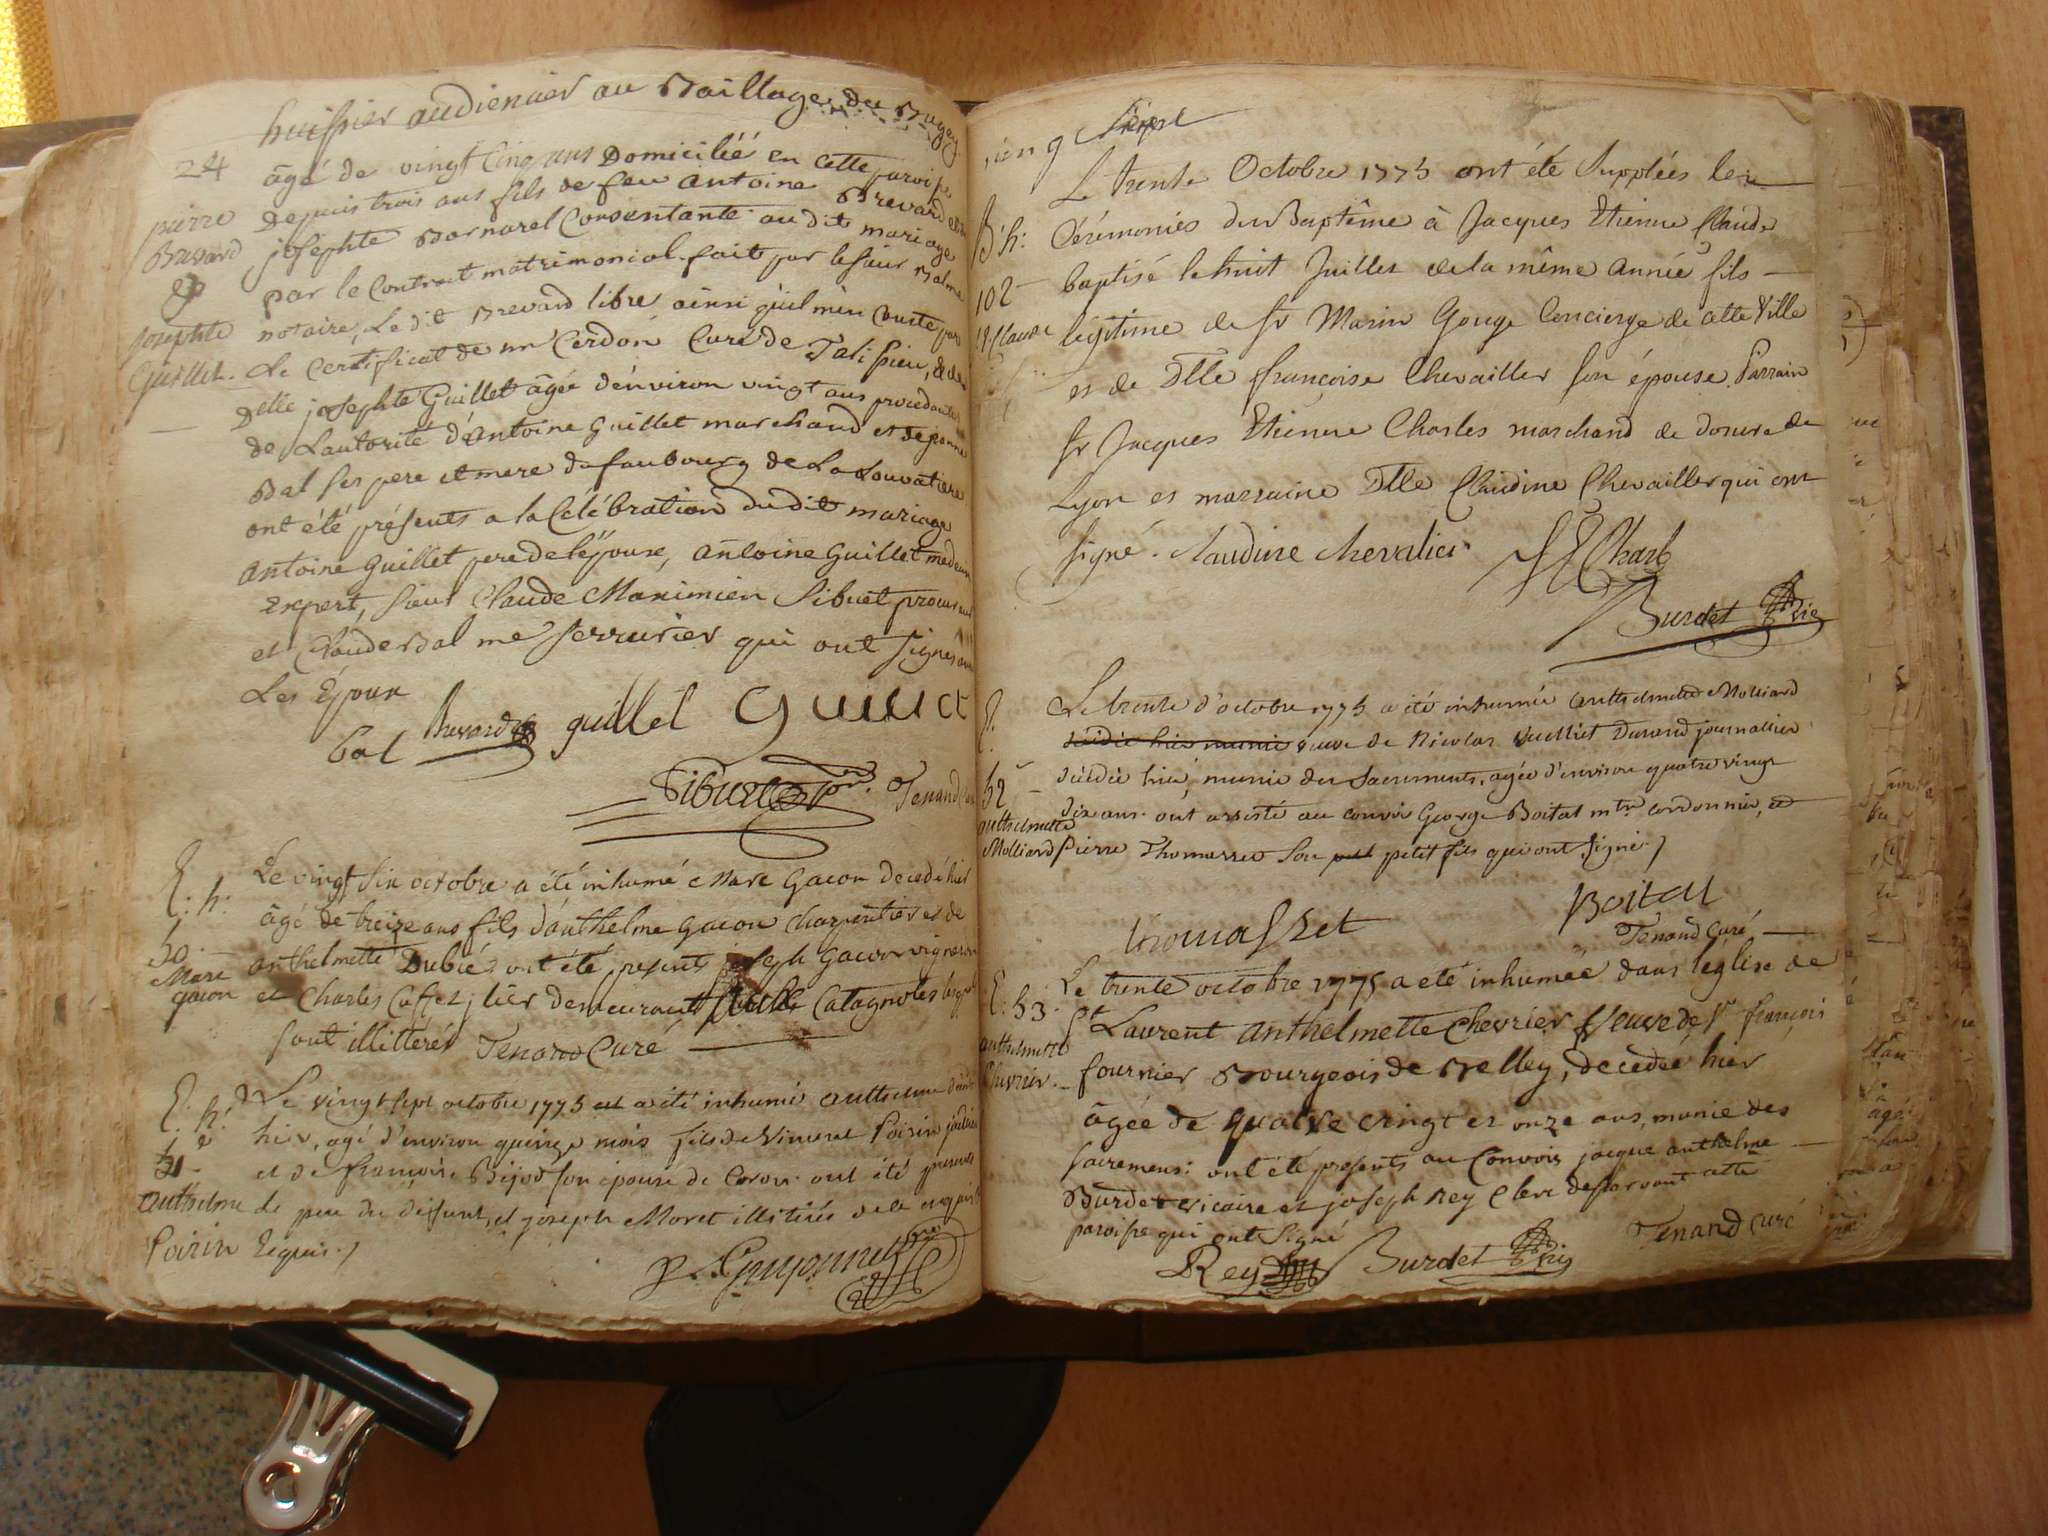 huissier audiencier au Baillage du Bugey
24
âgé de vingt cinq ans Domicilié en cette paroisse
pierre
Depuis trois ans fils de feu antoine Brevard et de
Brevard
josephte Barnarel Consentante audit mariage
&
par le Contrat matrimonial fait par le sieur Balme
josephte
notaire, Ledit Brevard libre ainsi quil men Conste par
Guillet.
Le Certificat de mr Cerdon Curé de Talissieu, & de
Delle josephte Guillet âgée d'environ vingt ans procedante
de Lautorité d'antoine Guillet marchand et de jeanne
Bal ses pere et mere du faubourg de La Louvatiere
ont été présents a la Célébration dudit mariage
antoine Guillet pere de l'épouse, antoine Guillet
Expert, sieur Claude Maximien Sibuet procureur
et Claude Balme serrurier qui ont signés avec
Les Epoux
bal Brevard guillet Guillet
Sibuet Tenand Curé
E. h. Le vingt six octobre a été inhumé Marc Gacon decedé hier
âgé de treize ans fils d'anthelme gacon charpentier et de
50
Marc
gacon
anthelmette Dubié ont été présents joseph Gacon vigneron
et Charles Caffet, demeurants Catagnoles lesquels
sont illitérés Tenand Curé
E. h. Le vingt sept octobre 1775 a été inhumé anthelme
51
hier, agé d'environ quinze mois fils de Vincent Poirin
et de françoise Bijod son épouse de Coron ont été présents
Anthelme
le pere du défunt, et joseph Moret illitérés de ce enquis
Poirin
Requis./
P. Guyonnet
L trente Octobre 1775 ont été Suppléés les
B. h. Cérémonies du Baptême à Jacques Etienne Claude
102 baptisé le huit Juillet de la même année fils
légitime de Sr Marin Gouge Concierge de cette Ville
et de Dlle françoise Chevailler son épouse. Parrain
Sr Jacques Etienne Charles marchand de dorure de
Lyon et marraine Dlle Claudine Chevailler qui ont
signé. Claudine Chevalier JE Charles
Burdet
Le trente d'octobre 1775 a été inhumée anthelmette Molliard
décédée hier munie veuve de Nicolas Vuilliet Durand journallier
décédée hier, munie des sacrements, agée d'environ quatre vingt
52
dix ans. ont assisté au convoi George Boital mtre cordonnier, et
anthelmette
Molliard
Pierre Thomasset son petit fils qui ont signé./
thomasset Boital
Tenand curé
E. 53. Le trente octobre 1775 a été inhumée dans l'église de
anthelmette
St Laurent anthelmette Chevrier Veuve de Sr françois
Chevrier
fournier Bourgeois de Belley, decedée hier
âgée de quatre vingt et onze ans, munie des
sacremens: ont été présents au Convoy jacque anthelme
Burdet vicaire et joseph Rey Clerc desservant cette
paroisse qui ont signé
Rey Burdet Tenand curé